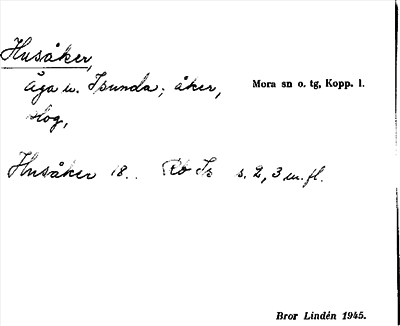 Husåker,
Åga u. Isunda; åker, Mora sn o. tg, Kopp. l.
skog,
Husåker 18.. Ro Is s. 2, 3 m. fl.
Bror Lindén 1945.